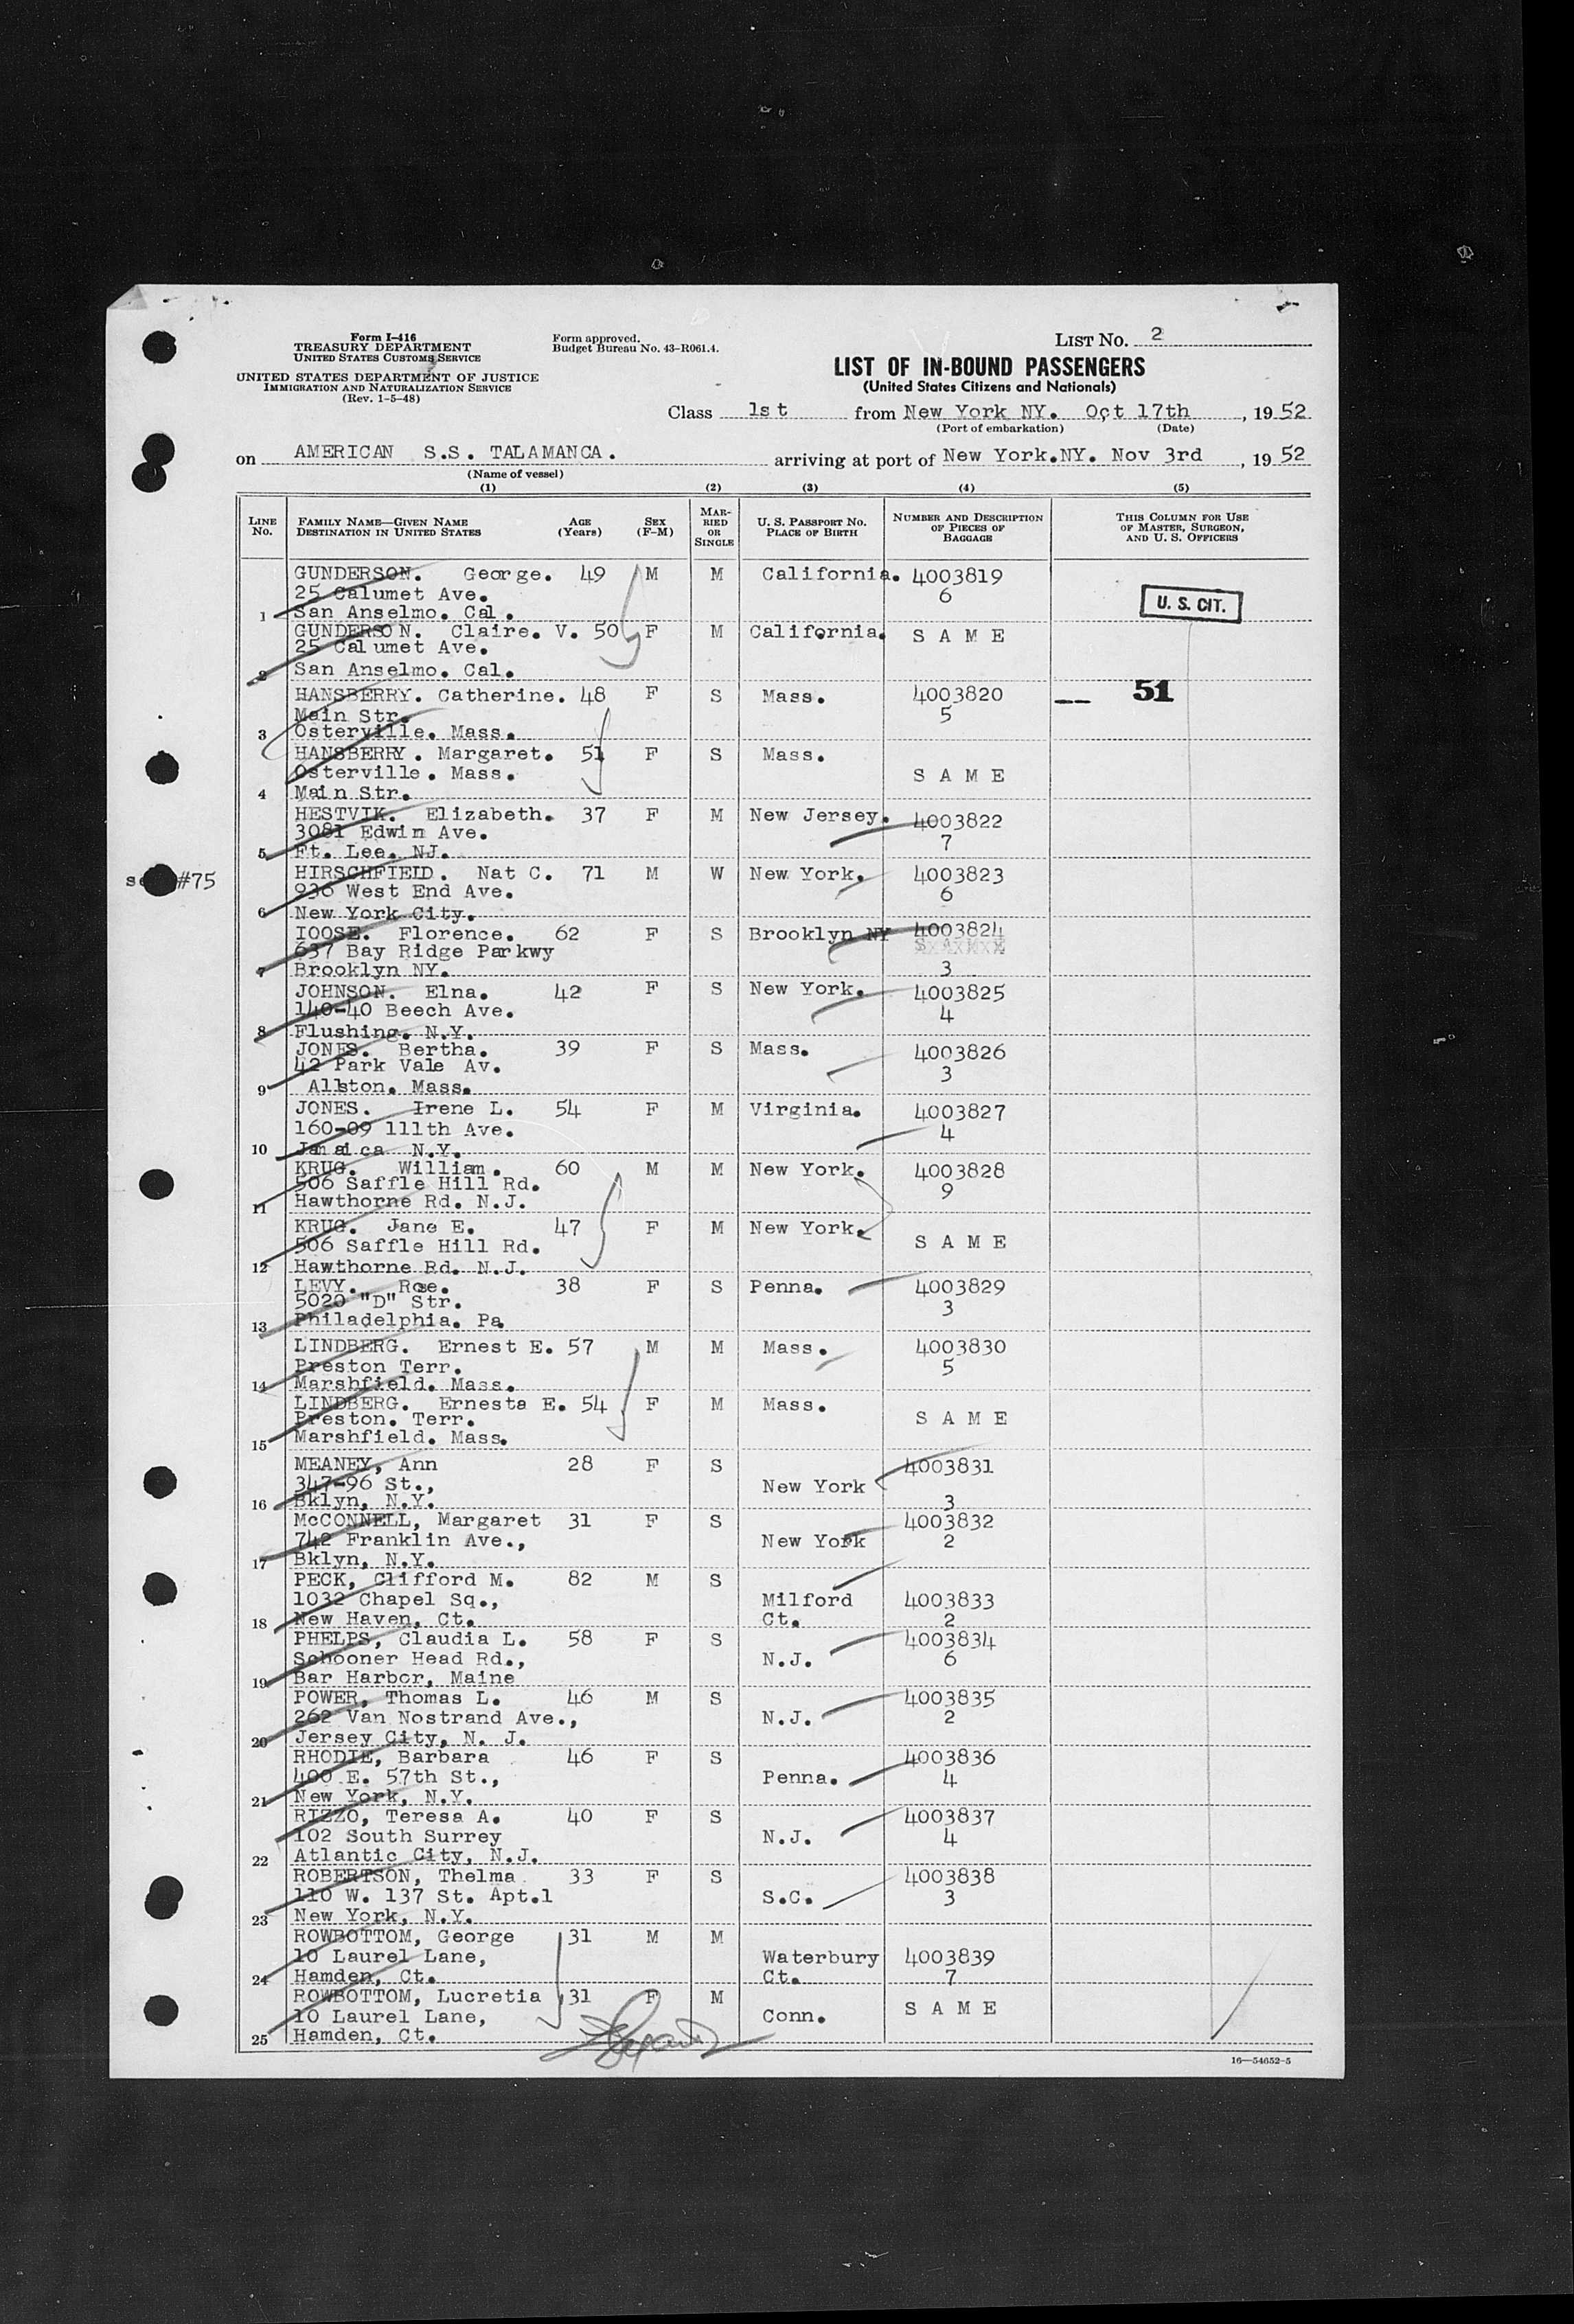 Form I-416
TREASURY DEPARTMENT
UNITED STATES CUSTOMS SERVICE
UNITED STATES DEPARTMENT OF JUSTICE
IMMIGRATION AND NATURALIZATION SERVICE
(Rev. 1-5-48)
Form approved.
Budget Bureau No. 43-R061.4.
LIST No. 2
LIST OF IN-BOUND PASSENGERS
(United States Citizens and Nationals)
Class 1st from New York NY. Oct 17th, 1952
(Port of embarkation) (Date)
on AMERICAN S.S. TALAMANCA. arriving at port of New York.NY. Nov 3rd, 1952
(Name of vessel)
(1) (2) (3) (4) (5)
LINE No. FAMILY NAME—GIVEN NAME DESTINATION IN UNITED STATES AGE (Years) SEX (F-M) MARRIED OR SINGLE U. S. PASSPORT No. PLACE OF BIRTH NUMBER AND DESCRIPTION OF PIECES OF BAGGAGE THIS COLUMN FOR USE OF MASTER, SURGEON, AND U. S. OFFICERS
GUNDERSON. George. 49 M M California. 4003819
25 Calumet Ave. 6 U. S. CIT.
1 San Anselmo. Cal.
GUNDERSON. Claire. V. 50 F M California. S A M E
25 Calumet Ave.
2 San Anselmo. Cal.
HANSBERRY. Catherine. 48 F S Mass. 4003820 -- 51
Main Str. 5
3 Osterville. Mass.
HANSBERRY. Margaret. 51 F S Mass.
Osterville. Mass. S A M E
4 Main Str.
HESTVIK. Elizabeth. 37 F M New Jersey. 4003822
3081 Edwin Ave. 7
5 Ft. Lee. NJ.
#75 HIRSCHFIELD. Nat C. 71 M W New York. 4003823
936 West End Ave. 6
6 New York City.
IOOSE. Florence. 62 F S Brooklyn NY 4003824
637 Bay Ridge Parkwy SxAxMxE
7 Brooklyn NY. 3
JOHNSON. Elna. 42 F S New York. 4003825
140-40 Beech Ave. 4
8 Flushing. N.Y.
JONES. Bertha. 39 F S Mass. 4003826
42 Park Vale Av. 3
9 Allston. Mass.
JONES. Irene L. 54 F M Virginia. 4003827
160-09 111th Ave. 4
10 Jamaica N.Y.
KRUG. William. 60 M M New York. 4003828
506 Saffle Hill Rd. 9
11 Hawthorne Rd. N.J.
KRUG. Jane E. 47 F M New York.
506 Saffle Hill Rd. S A M E
12 Hawthorne Rd. N.J.
LEVY. Rose. 38 F S Penna. 4003829
5020 "D" Str. 3
13 Philadelphia. Pa
LINDBERG. Ernest E. 57 M M Mass. 4003830
Preston Terr. 5
14 Marshfield. Mass.
LINDBERG. Ernesta E. 54 F M Mass.
Preston. Terr. S A M E
15 Marshfield. Mass.
MEANEY, Ann 28 F S 4003831
347-96 St., New York
16 Bklyn, N.Y. 3
McCONNELL, Margaret 31 F S 4003832
742 Franklin Ave., New York 2
17 Bklyn, N.Y.
PECK, Clifford M. 82 M S
1032 Chapel Sq., Milford 4003833
18 New Haven, Ct. Ct. 2
PHELPS, Claudia L. 58 F S 4003834
Schooner Head Rd., N.J. 6
19 Bar Harbor, Maine
POWER, Thomas L. 46 M S 4003835
262 Van Nostrand Ave., N.J. 2
20 Jersey City, N. J.
RHODIE, Barbara 46 F S 4003836
400 E. 57th St., Penna. 4
21 New York, N.Y.
RIZZO, Teresa A. 40 F S 4003837
102 South Surrey N.J. 4
22 Atlantic City, N.J.
ROBERTSON, Thelma 33 F S 4003838
110 W. 137 St. Apt.1 S.C. 3
23 New York, N.Y.
ROWBOTTOM, George 31 M M
10 Laurel Lane, Waterbury 4003839
24 Hamden, Ct. Ct. 7
ROWBOTTOM, Lucretia 31 F M S A M E
10 Laurel Lane, Conn.
25 Hamden, Ct.
16—54652-5